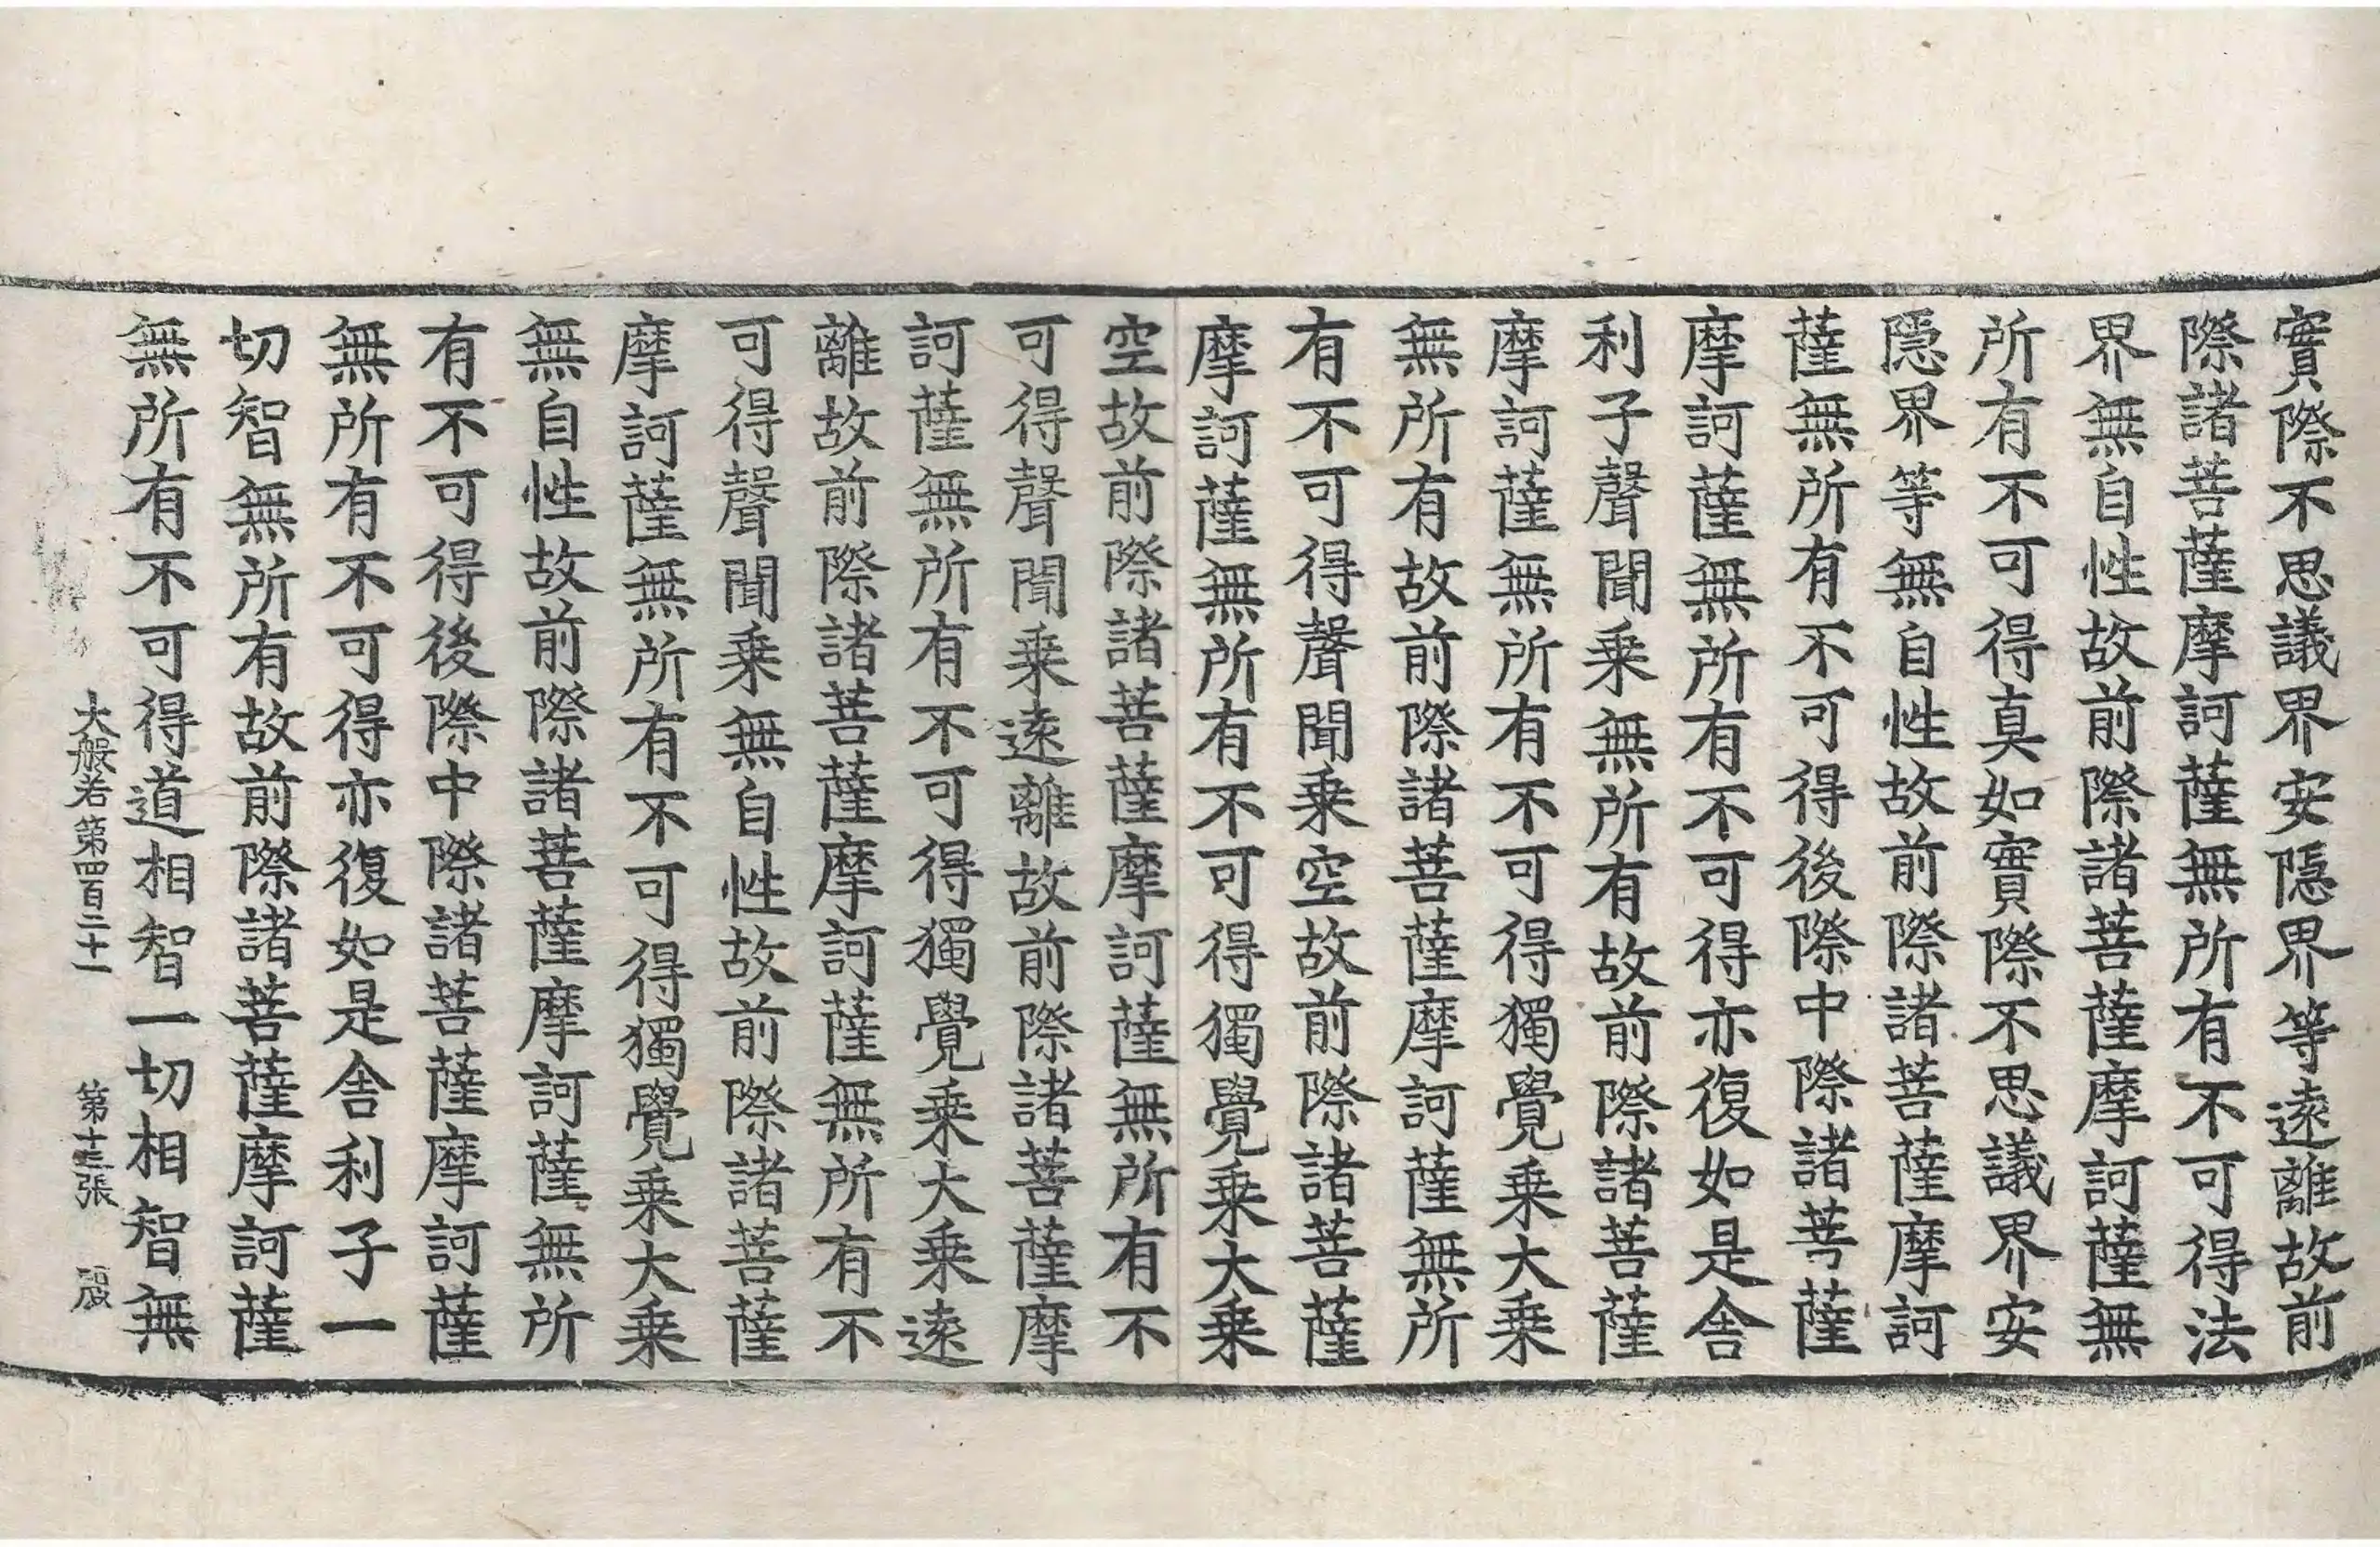 實際不思議界安隱界等遠離故前
際諸菩薩摩訶薩無所有不可得法
界無自性故前際諸菩薩摩訶薩無
所有不可得真如實際不思議界安
隱界等無自性故前際諸菩薩摩訶
薩無所有不可得後際中際諸菩薩
摩訶薩無所有不可得亦復如是舍
利子聲聞乗無所有故前際諸菩薩
摩訶薩無所有不可得獨覺乗大乗
無所有故前際諸菩薩摩訶薩無所
有不可得聲聞乗空故前際諸菩薩
摩訶薩無所有不可得獨覺乗大乗
空故前際諸菩薩摩訶薩無所有不
可得聲聞乗遠離故前際諸菩薩摩
訶薩無所有不可得獨覺乗大乗遠
離故前際諸菩薩摩訶薩無所有不
可得聲聞乗無自性故前際諸菩薩
摩訶薩無所有不可得獨覺乗大乗
無自性故前際諸菩薩摩訶薩無所
有不可得後際中際諸菩薩摩訶薩
無所有不可得亦復如是舍利子一
切智無所有故前際諸菩薩摩訶薩
無所有不可得道相智一切相智無
大般若第四百二十一 第張